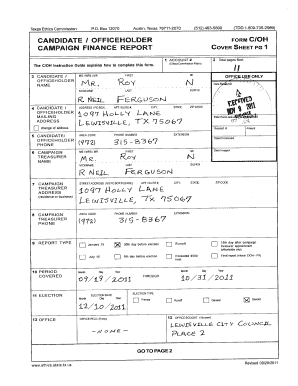 Texas Ethics Commission P.O. Box 12070 Austin, Texas 78711-2070 (512) 463-5800 (TDD 1-800-735-2989)
CANDIDATE / OFFICEHOLDER CAMPAIGN FINANCE REPORT
FORM C/OH
COVER SHEET PG 1
The C/OH Instruction Guide explains how to complete this form.
1 ACCOUNT #
2 Total pages filed:
11
3 CANDIDATE / OFFICEHOLDER NAME
MS / MRS / MR FIRST MI
MR. ROY N
NICKNAME LAST SUFFIX
R NEIL FERGUSON
OFFICE USE ONLY
RECEIVED
NOV 9 2011
4 CANDIDATE / OFFICEHOLDER MAILING ADDRESS
change of address
1097 HOLLY LANE
LEWISVILLE, TX 75067
5 CANDIDATE / OFFICEHOLDER PHONE
AREA CODE PHONE NUMBER EXTENSION
(972) 315-8367
6 CAMPAIGN TREASURER NAME
MS / MRS / MR FIRST MI
MR. ROY N
NICKNAME LAST SUFFIX
R NEIL FERGUSON
7 CAMPAIGN TREASURER ADDRESS
(residence or business)
1097 HOLLY LANE
LEWISVILLE, TX 75067
8 CAMPAIGN TREASURER PHONE
AREA CODE PHONE NUMBER EXTENSION
(972) 315-8367
9 REPORT TYPE
January 15
30th day before election
Runoff
15th day after campaign treasurer appointment
July 15
8th day before election
Exceeded $500 limit
Final report
10 PERIOD COVERED
Month Day Year
09/19/2011
THROUGH
Month Day Year
10/31/2011
11 ELECTION
ELECTION DATE
Month Day Year
12/10/2011
ELECTION TYPE
Primary
Runoff
General
Special
12 OFFICE
OFFICE HELD (if any)
-NONE-
13 OFFICE SOUGHT (if known)
LEWISVILLE CITY COUNCIL
PLACE 2
GO TO PAGE 2
www.ethics.state.tx.us
Revised 09/28/2011